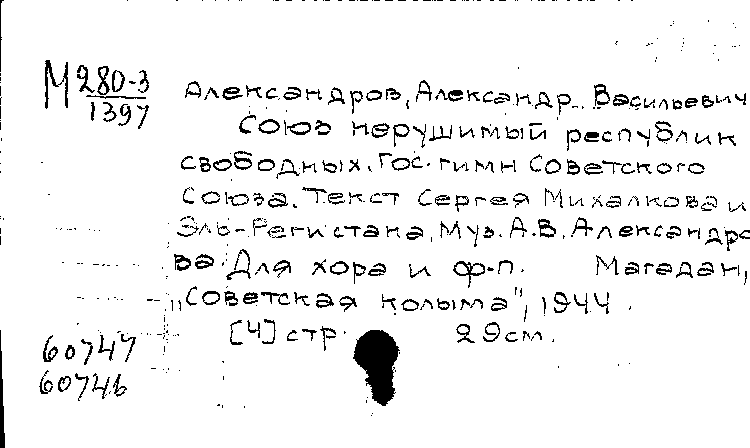 М 280-3
1397
Александров, Александр Васильевич
Союз нерушимый республик
свободных. Гос. гимн Советского
Союза. Текст Сергея Михалкова и
Эль-Регистана, Муз. А.В. Александро
ва Для хора и ф-п. Магадан,
„Советская колыма", 1944.
[4] стр. 29см.
60747
60746